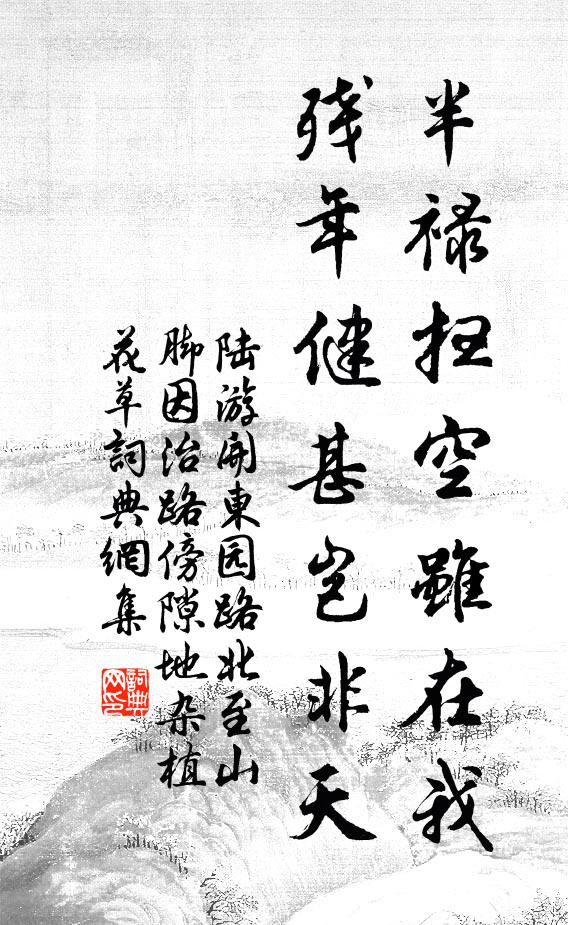 半禄扫空虽在我
残年健甚岂非天
陆游开東园路北至山
脚因治路傍隙地杂植
花草詞典網集
詞典
网印